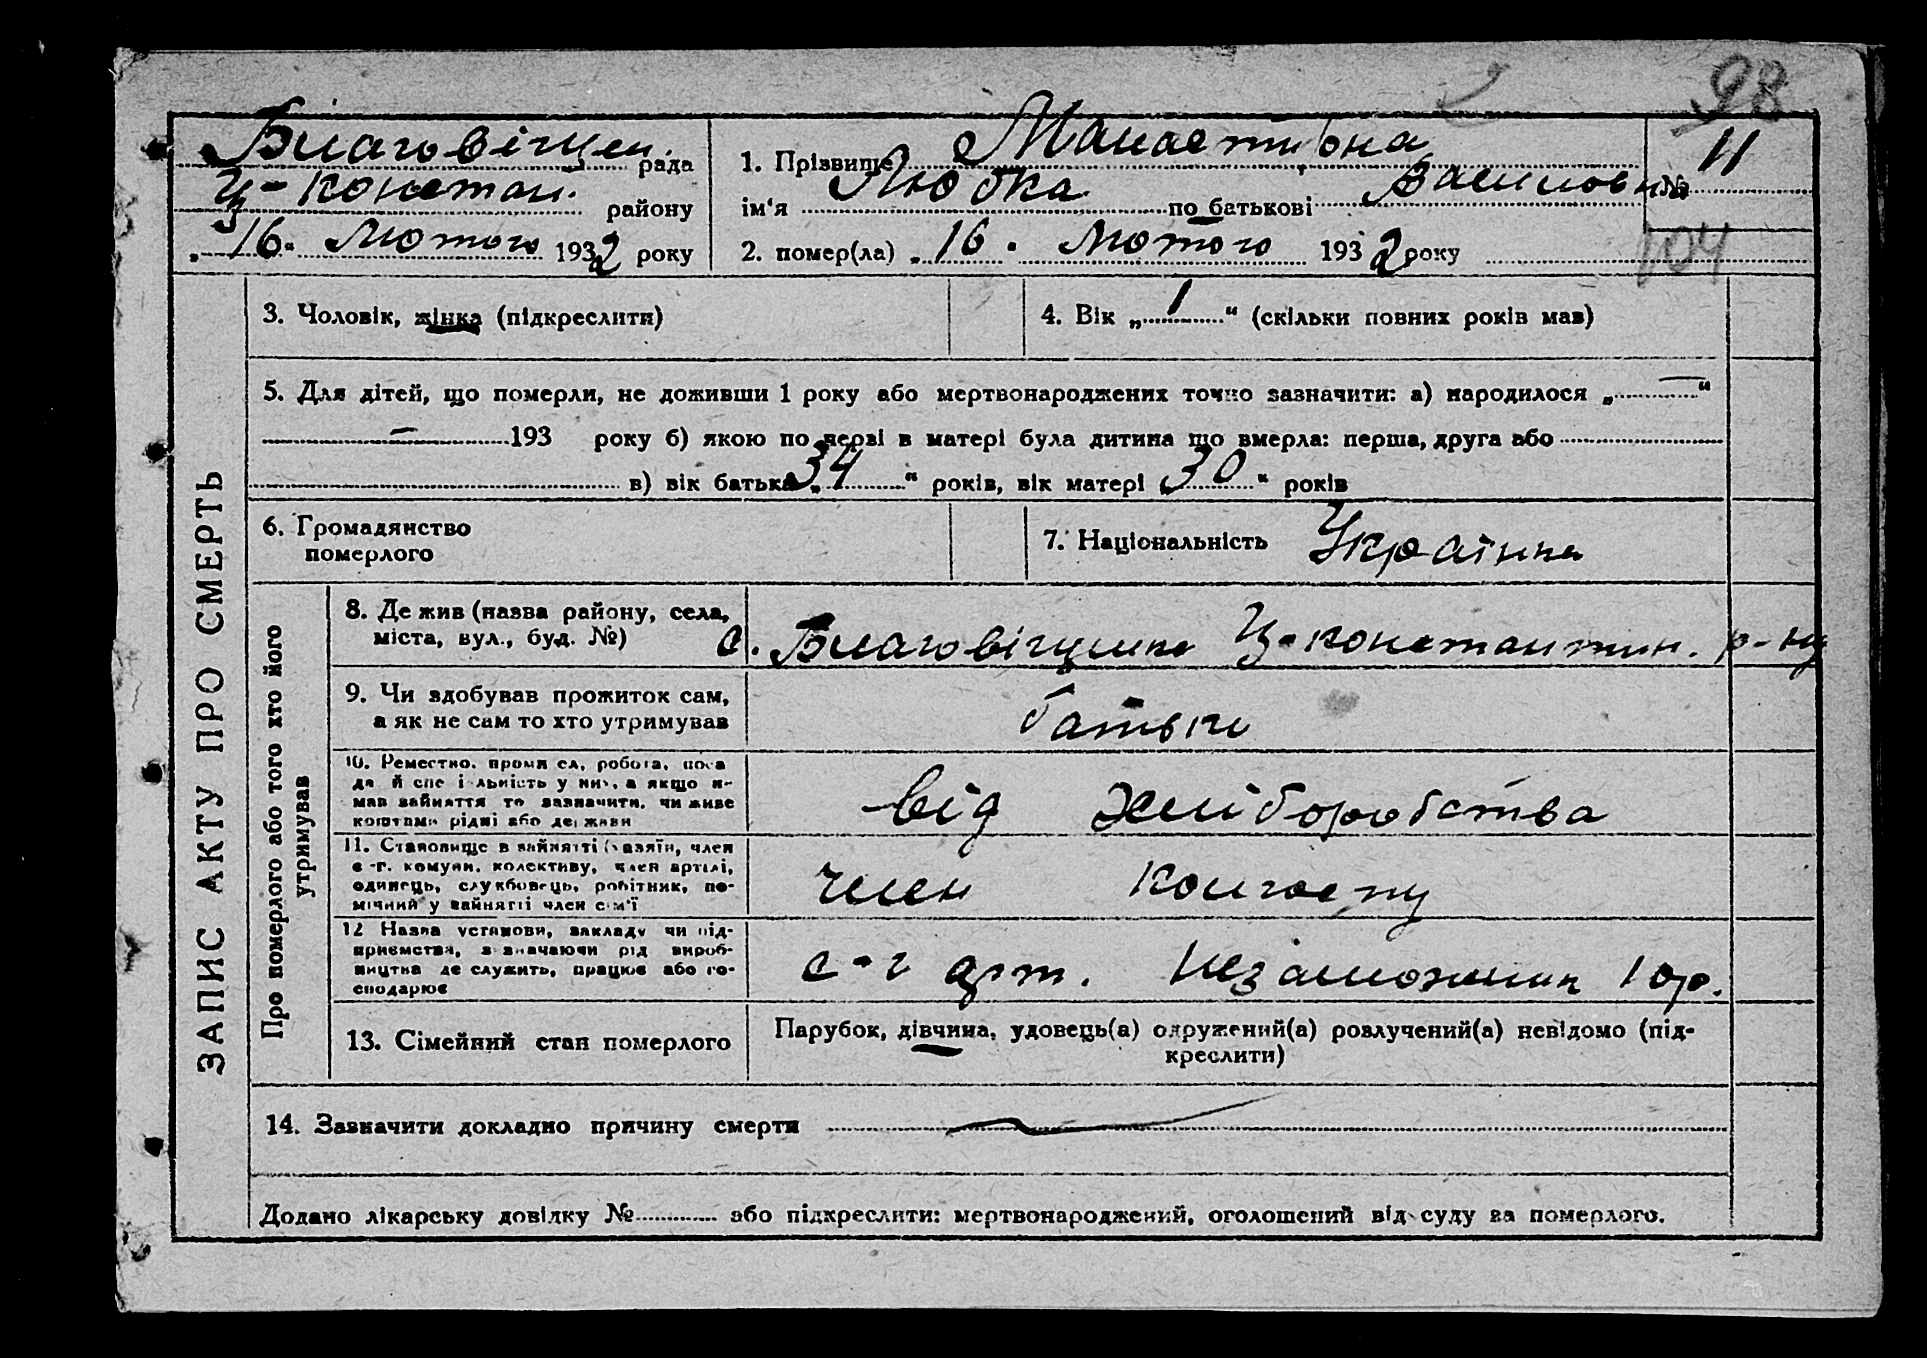 98
Благовіщен. рада
Ц-констан. району
„16" Лютого 1932 року
1. Прізвище Манастирьона
ім'я Любка по батькові Василовна
2. помер(ла) „16" Лютого 1932 року
№ 11
104
ЗАПИС АКТУ ПРО СМЕРТЬ
3. Чоловік, жінка (підкреслити)
4. Вік „1" (скільки повних років мав)
5. Для дітей, що померли, не доживши 1 року або мертвонароджених точно зазначити: а) народилося „—"
— 193 року б) якою по черзі в матері була дитина що вмерла: перша, друга або
в) вік батька „34" років, вік матері „30" років
6. Громадянство
померлого
7. Національність Українка
Про померлого або того хто його
утримував
8. Де жив (назва району, села,
міста, вул., буд. №)
с. Благовіщинка Ц-константин. р-ну
9. Чи здобував прожиток сам,
а як не сам то хто утримував
батьки
10. Ремество, промисел, робота, поса
да й спеціяльність у них, а якщо н-
мав зайняття то зазначити, чи живе
коштами рідні або держави
від хліборобства
11. Становище в зайнятті (хазяїн, член
с-г. комуни, колективу, член артілі,
одинець, службовець, робітник, по-
мічний у зайнятті член сім'ї
член колгоспу
12 Назва установи, закладу чи під-
приємства, зазначаючи рід вироб-
ництва де служить, працює або го-
сподарює
с-г арт. Незаможник 1 ор.
13. Сімейний стан померлого
Парубок, дівчина, удовець(а) одружений(а) розлучений(а) невідомо (під-
креслити)
14. Зазначити докладно причину смерти
Додано лікарську довідку № або підкреслити: мертвонароджений, оголошений від суду за померлого.